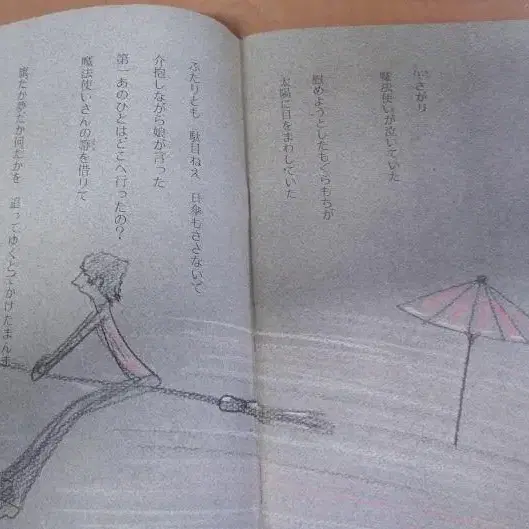 昼さがり
魔法使いが泣いていた
慰めようとしたもぐらもちが
太陽に目をまわしていた
ふたりとも 駄目ねえ 日傘もささないで
介抱しながら娘が言った
第一あのひとはどこへ行ったの?
魔法使いさんの箒を借りて
旗だか夢だか何だかを 追ってゆくとでかけたまんま